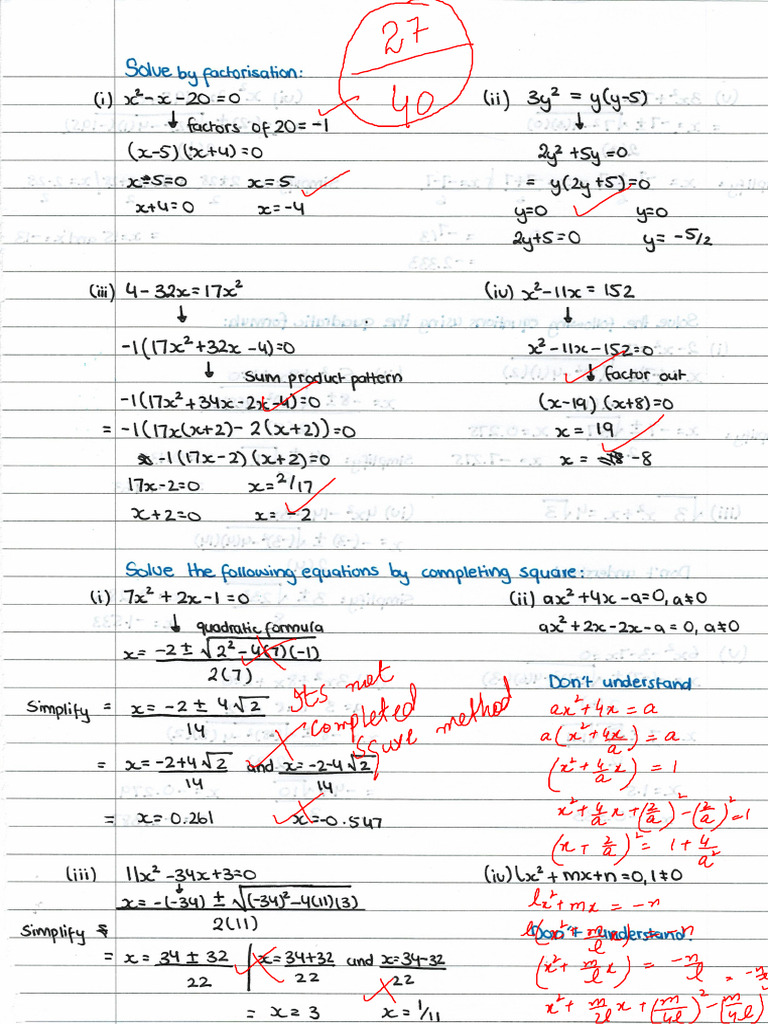 27
40
Solve by factorisation:
(i) x² - x - 20 = 0
↓ factors of 20 = -1
(x-5)(x+4) = 0
x-5=0 x=5
x+4=0 x=-4
(ii) 3y² = y(y-5)
↓
2y² + 5y = 0
= y(2y+5) = 0
y=0 y=0
2y+5=0 y= -5/2
(iii) 4 - 32x = 17x²
↓
-1(17x² + 32x - 4) = 0
↓ sum product pattern
-1(17x² + 34x - 2x - 4) = 0
= -1(17x(x+2) - 2(x+2)) = 0
-1(17x-2)(x+2) = 0
17x-2=0 x= 2/17
x+2=0 x= -2
(iv) x² - 11x = 152
↓
x² - 11x - 152 = 0
↓ factor out
(x-19)(x+8) = 0
x = 19
x = -8
Solve the following equations by completing square:
(i) 7x² + 2x - 1 = 0
↓ quadratic formula
x = -2 ± √2² - 4(7)(-1)
2(7)
Simplify = x = -2 ± 4√2
14
= x = -2+4√2 and x = -2-4√2
14 14
= x = 0.261 x = -0.547
Its not
completed
ssure method
(ii) ax² + 4x - a = 0, a≠0
ax² + 2x - 2x - a = 0, a≠0
Don't understand
ax² + 4x = a
a(x² + 4x/a) = a
(x² + 4/a x) = 1
x² + 4/a x + (2/a)² - (2/a)² = 1
(x + 2/a)² = 1 + 4/a²
(iii) 11x² - 34x + 3 = 0
↓
x = -(-34) ± √(-34)² - 4(11)(3)
2(11)
Simplify
= x = 34 ± 32 | x = 34+32 and x = 34-32
22 22 22
= x = 3 x = 1/11
(iv) lx² + mx + n = 0, l≠0
lx² + mx = -n
Don't understand
l(x² + m/l x) = -n
(x² + m/l x) = -n/l
x² + m/2l x + (m/4l)² - (m/4l)